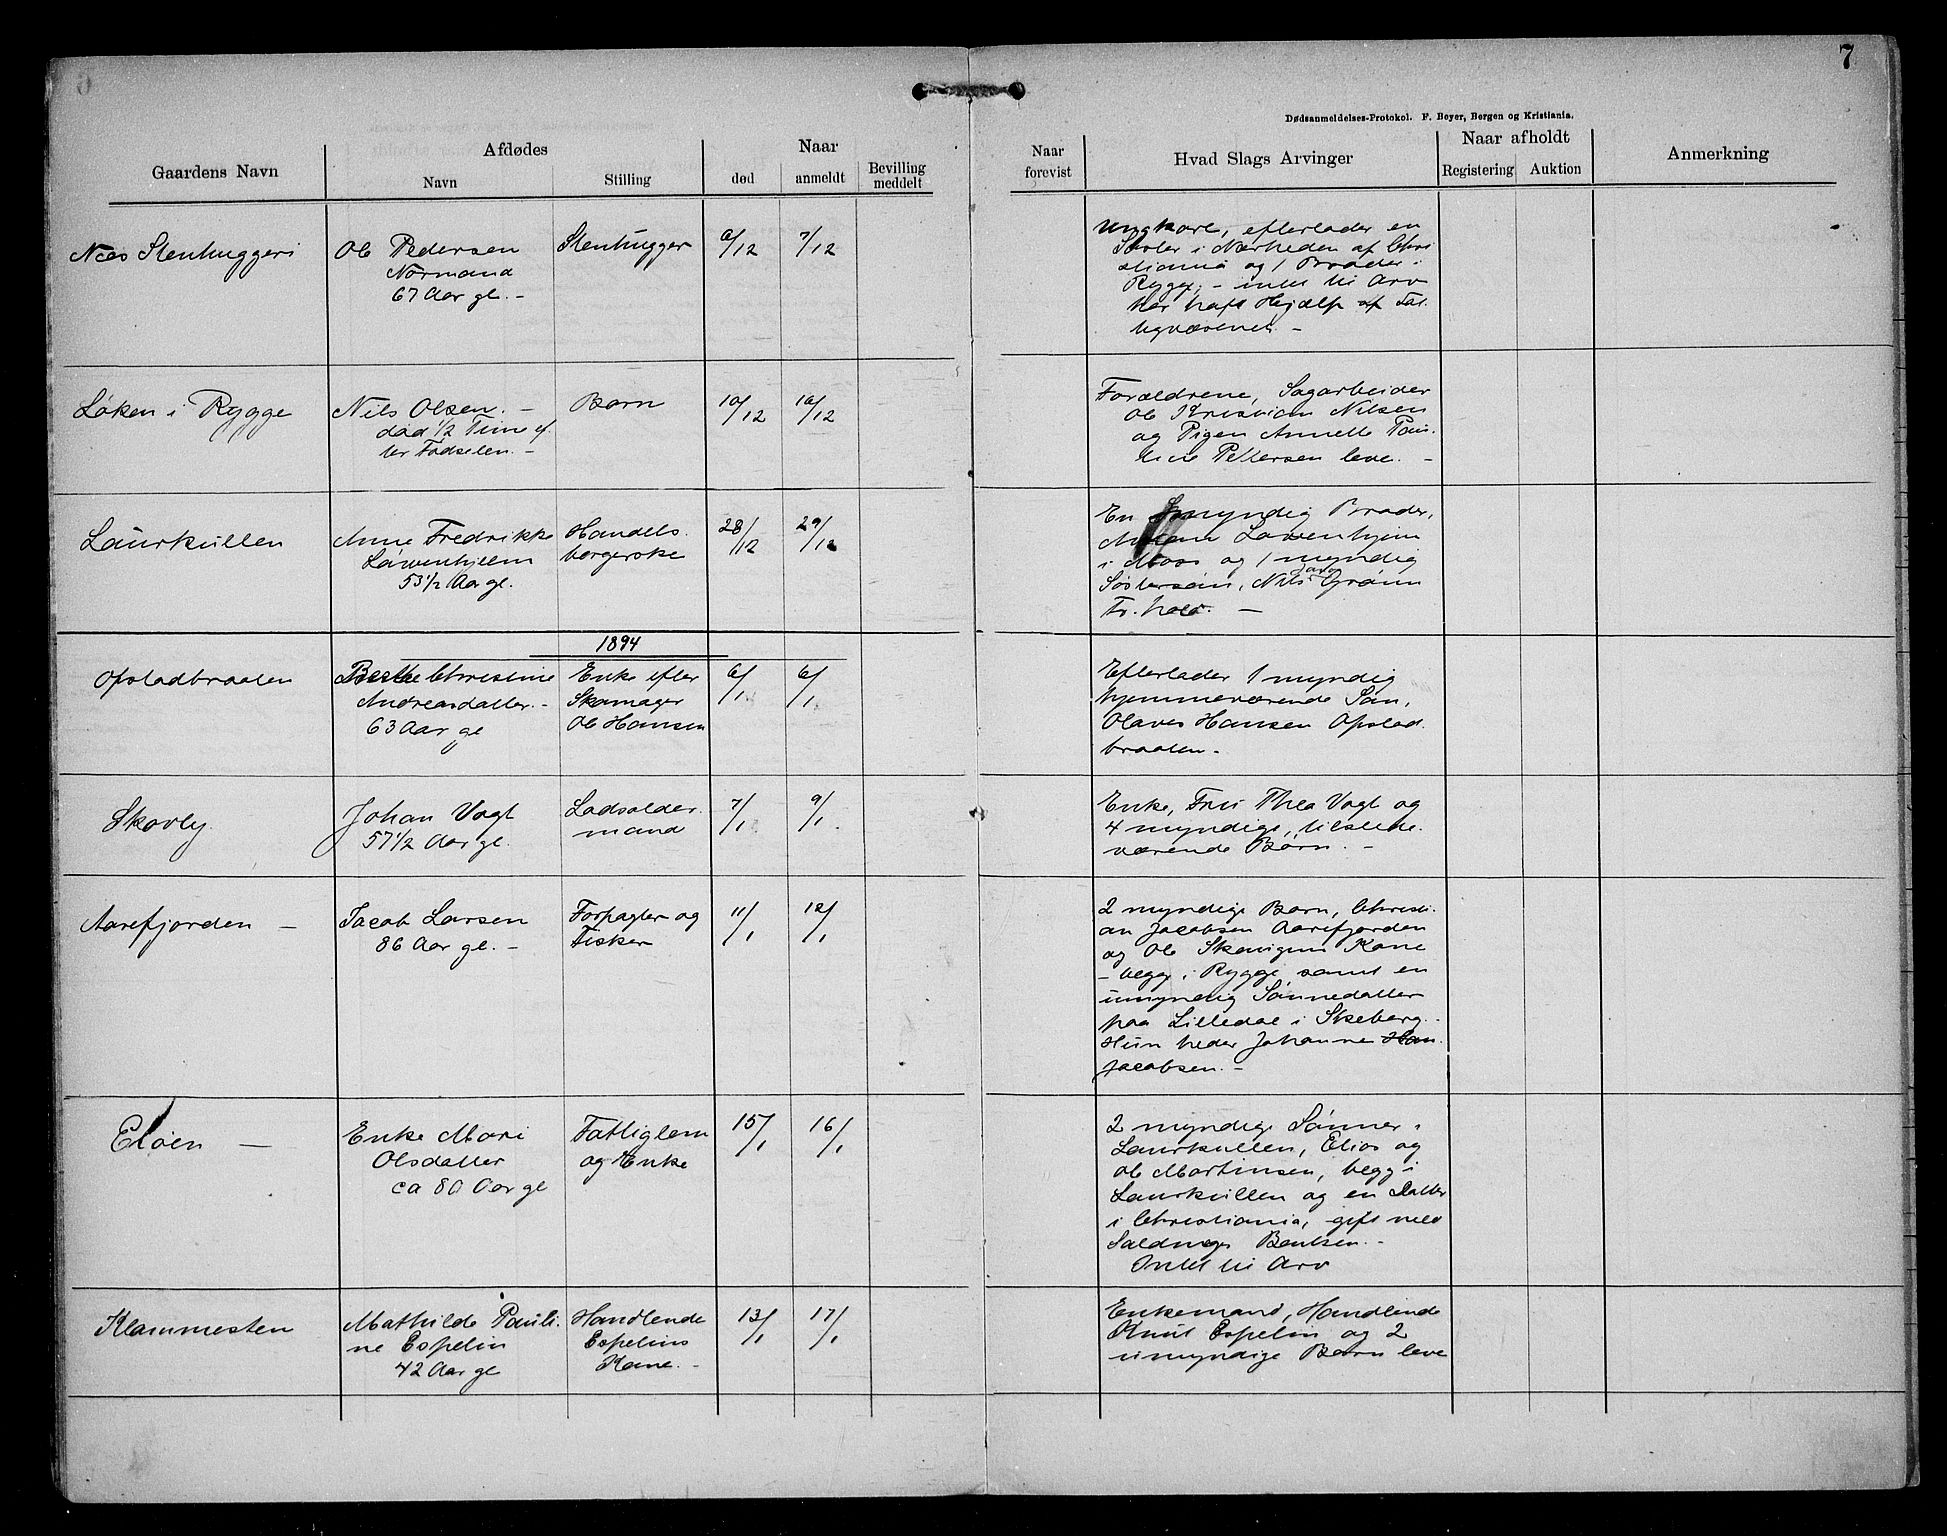 7
Dødsanmeldelses-Protokol. F. Beyer, Bergen og Kristiania.
Gaardens Navn
Afdødes
Navn
Stilling
Naar
død
anmeldt
Bevilling
meddelt
Naar
forevist
Hvad Slags Arvinger
Naar afholdt
Registering
Auktion
Anmerkning
Næs Stenhuggeri
Ole Pedersen
Normand
67 Aar gl. –
Stenhugger
6/12
7/12
Ungkarl, efterlader en
i Nærheden af Chri
stiania og 1 Broder i
Rygge, – intet til Arv
har havt Hjælp af Fat
tigvæsenet. –
Løken i Rygge
Nils Olsen. –
død 1/2 Time ef
ter Fødselen. –
Barn
10/12
10/12
Forældrene, Sagarbeider
Ole Kristian Nilsen
og Pigen Annette Pau
line Pettersen leve. –
Laurkullen
Anne Fredrikke
Løwenhjelm
53 1/2 Aar gl.
Handels
borgerske
28/12
29/12
En myndig Broder,
Løvenhjem
i Moss og 1 myndig
Søstersøn, Nils Grønn
Fr.hald. –
1894
Opstadbraaten
Berthe Christine
Andreasdatter. –
63 Aar gl
Enke efter
Skomager
Ole Hansen
6/1
6/1
Efterlader 1 myndig
hjemmeværende Søn,
Olaves Hansen Opstad
braaten. –
Skovly
Johan Vogt
57 1/2 Aar gl.
Lodsolder
mand
7/1
9/1
Enke, Fru Thea Vogt og
4 myndige, tilstede
værende Børn. –
Aarefjorden –
Jacob Larsen
86 Aar gl. –
Forpagter og
Fisker
11/1
12/1
2 myndige Børn, Christi
an Jacobsen Aarefjorden
og Ole Skovigens Kone
– begge i Rygge, samt en
umyndig Sønnedatter
paa Liledal i Skeberg.
Hun heder Johanne Han
Jacobsen. –
Eløen –
Enke Mari
Olsdatter
ca 80 Aar gl
Fattiglem
og Enke
15/1
16/1
2 myndige Sønner i
Laurkullen, Elias og
Ole Martinsen, begge i
Laurkullen og en Datter
i Christiania, gift med
Bentsen. –
Intet til Arv
Klammesten
Mathilde Pauli
ne Espelin
42 Aar gl
Handlende
Espelins
Kone. –
13/1
17/1
Enkemand, Handlende
Knut Espelin og 2
umyndige Børn leve